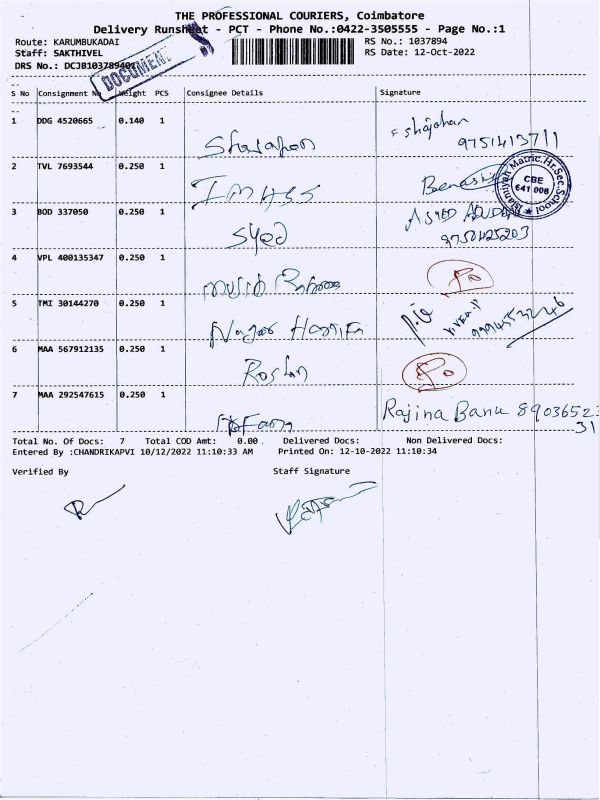 THE PROFESSIONAL COURIERS, Coimbatore
Delivery Runsheet - PCT - Phone No.:0422-3505555 - Page No.:1
Route: KARUMBUKADAI
RS No.: 1037894
Staff: SAKTHIVEL
RS Date: 12-Oct-2022
DRS No.: DCJB103789401
DOCUMENT
S No Consignment No Weight PCS Consignee Details Signature
1 DDG 4520665 0.140 1
9751413711
2 TVL 7693544 0.250 1 IMHSS
Islamiyah Matric.Hr.Sec.School
CBE
641 008
3 BOD 337050 0.250 1 Syed
9750425203
4 VPL 400135347 0.250 1
5 TMI 30144270 0.250 1
6 MAA 567912135 0.250 1 Roshan
7 MAA 292547615 0.250 1 Rajina Banu 89036523
31
Total No. Of Docs: 7 Total COD Amt: 0.00 Delivered Docs: Non Delivered Docs:
Entered By :CHANDRIKAPVI 10/12/2022 11:10:33 AM Printed On: 12-10-2022 11:10:34
Verified By Staff Signature